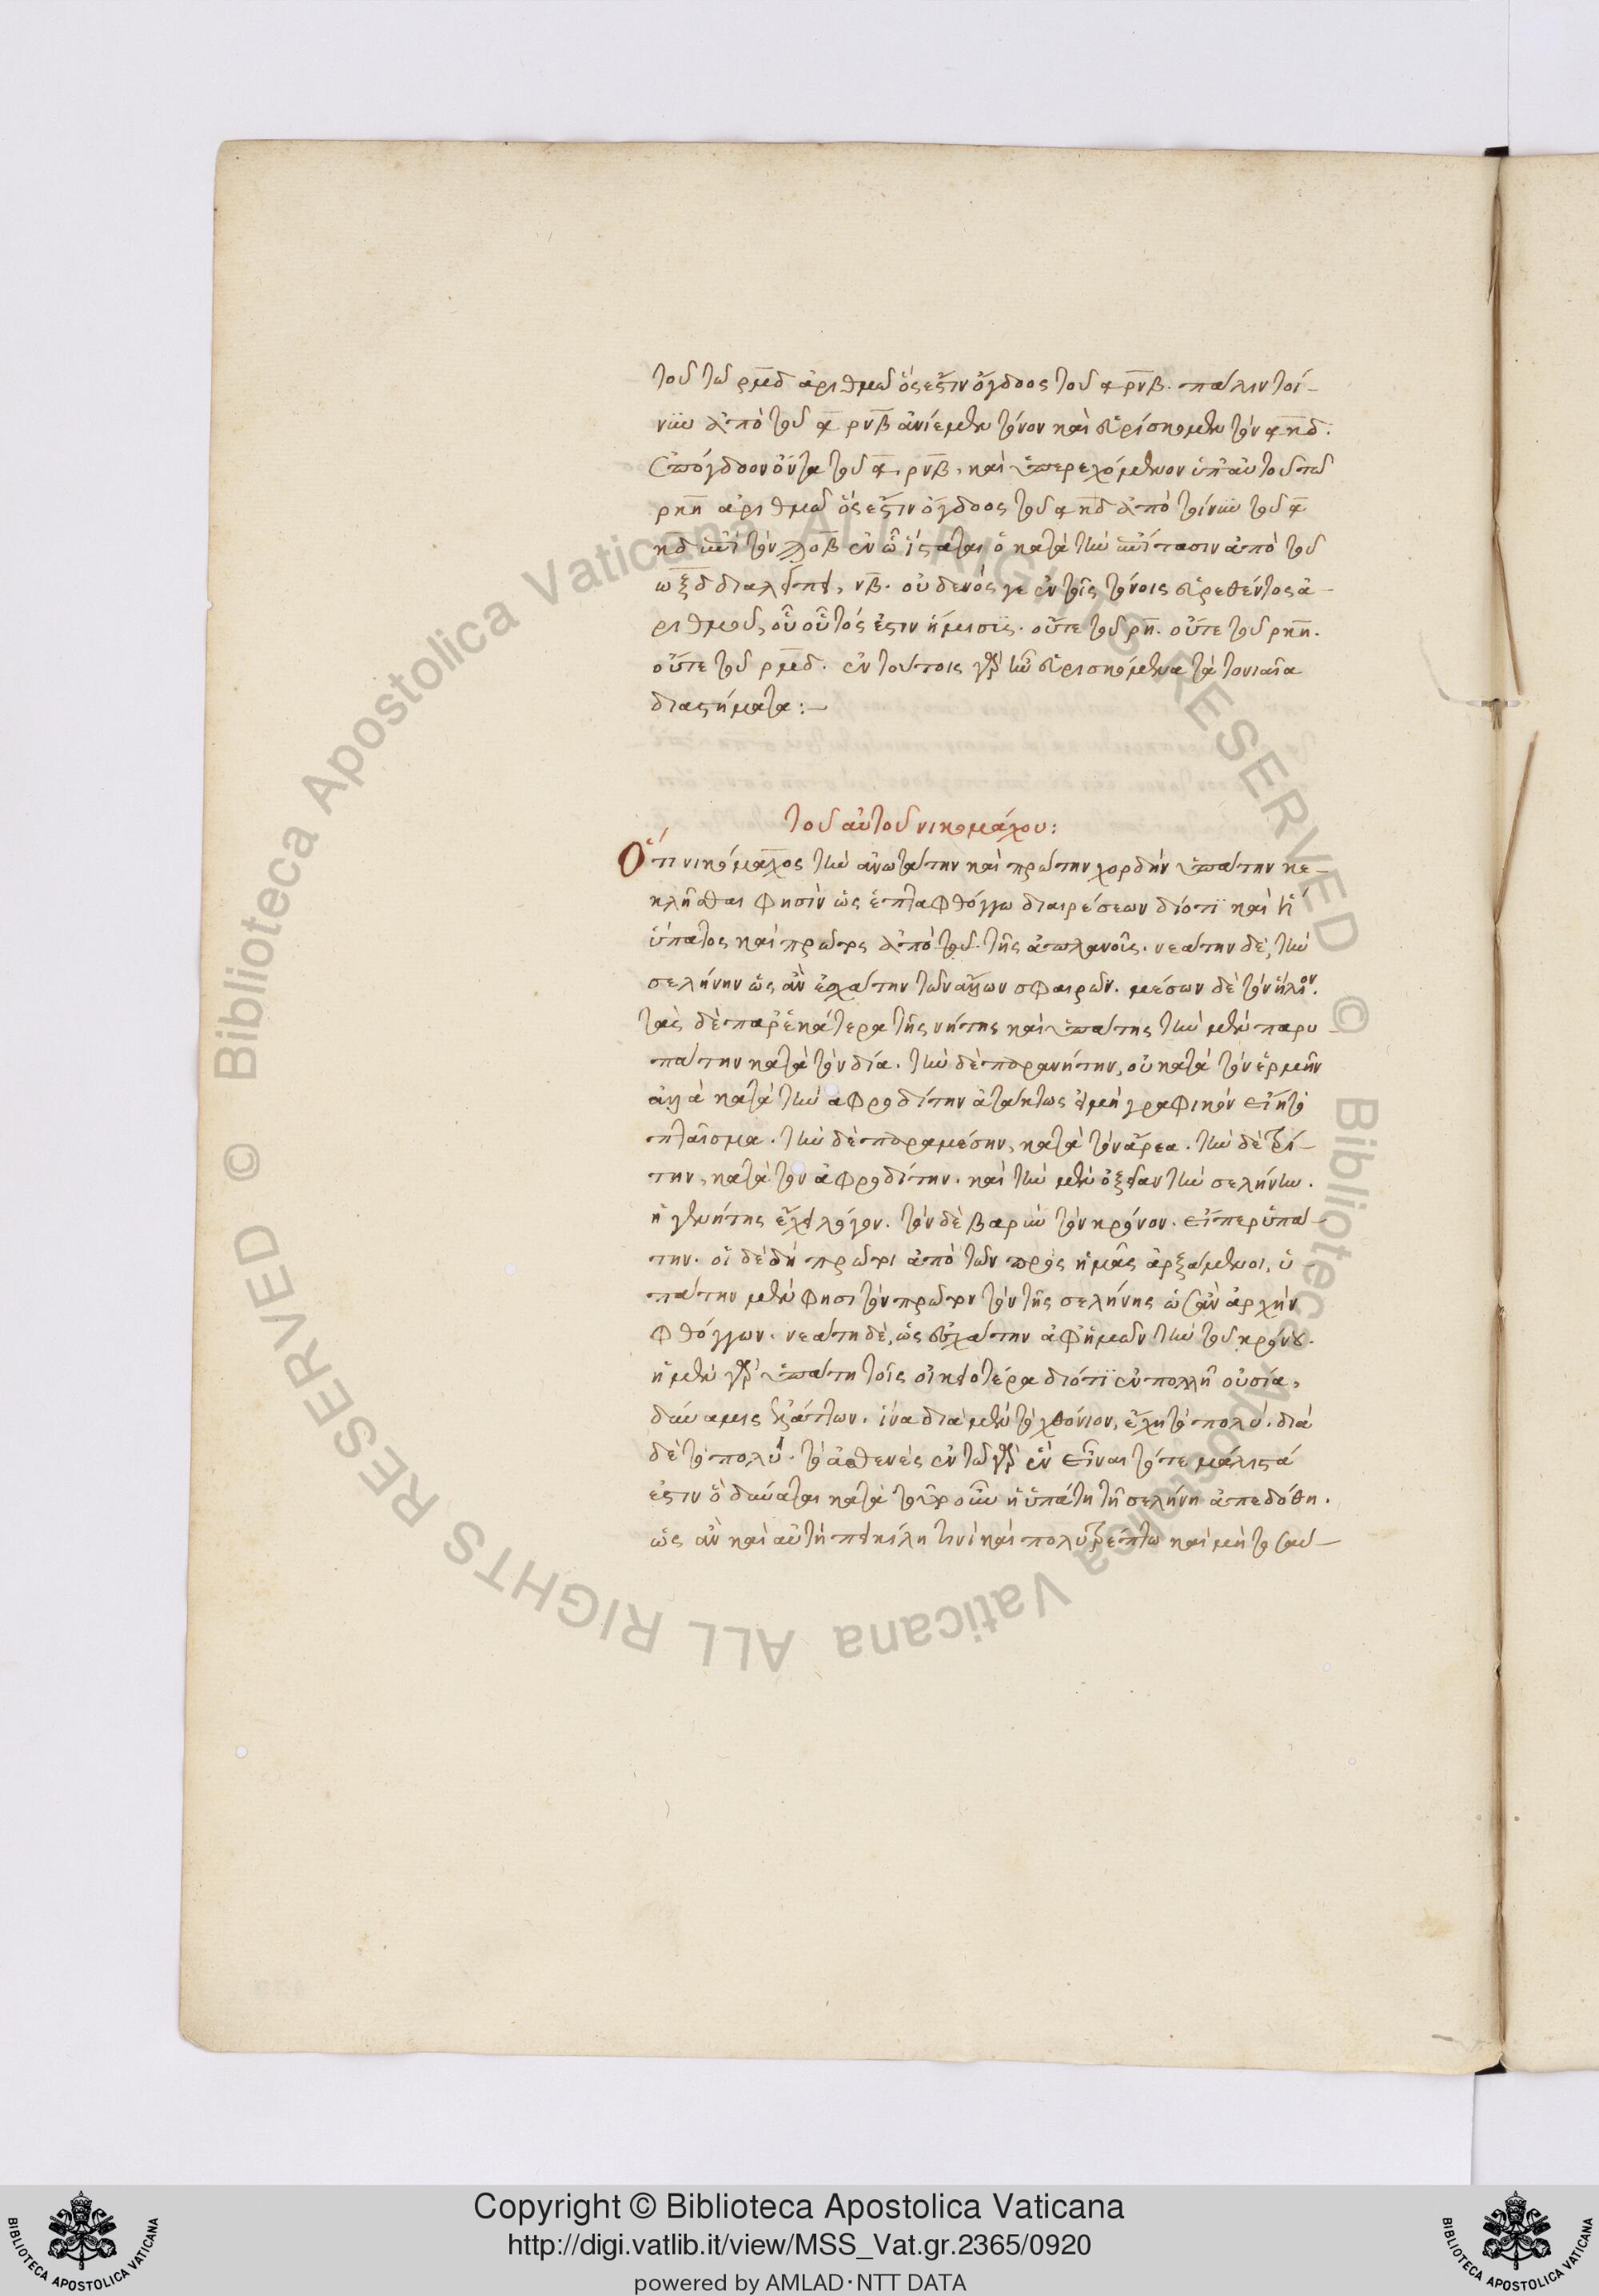 τοῦ τῶ ρμδ ἀριθμῶ ὅς ἐστιν ὄγδοος τοῦ ͵α ρνβ. πάλιν τοί-
νυν ἀπὸ τοῦ ͵α ρνβ ἀνίεμεν τόνον καὶ εὑρίσκομεν τὸν ͵α κδ.
ἐπόγδοον ὄντα τοῦ ͵α. ρνβ, καὶ ὑπερεχόμενον ὑπ' αὐτοῦ τῶ
ρκη ἀριθμῶ ὅς ἐστιν ὄγδοος τοῦ ͵α κδ ἀπὸ τοίνυν τοῦ ͵α
κδ ἐπὶ τὸν ἐν ὧ ἵσταται ὁ κατὰ τὴν ἐπίτασιν ἀπὸ τοῦ
ωξδ διαλείπει, νβ. οὐδενός γε ἐν τοῖς τόνοις εὑρεθέντος ἀ-
ριθμοῦ, οὗ οὗτός ἐστιν ἥμισυς. οὔτε τοῦ ρη. οὔτε τοῦ ρκη.
οὔτε τοῦ ρμδ. ἐν τούτοις γὰρ ἦν εὑρισκόμενα τὰ τονιαῖα
διαστήματα:-
τοῦ αὐτοῦ νικομάχου:
Ὅτι νικόμαχος τὴν ἀνωτάτην καὶ πρώτην χορδὴν ὑπάτην κε-
κλῆσθαι φησὶν ὡς ἑπταφθόγγω διαιρέσεων διότι καὶ
ὕπατος καὶ πρῶτος ἀπὸ τοῦ τῆς ἀπλανοῦς. νεάτην δὲ, τὴν
σελήνην ὡς ἂν ἐσχάτην τῶν ἄλλων σφαιρῶν. μέσων δὲ τὸν ἥλιον.
τὰς δὲ παρ' ἑκάτερα τῆς νήτης καὶ ὑπάτης τὴν μὲν παρυ-
πάτην κατὰ τὸν δία. τὴν δὲ παρανήτην, οὐ κατὰ τὸν ἑρμῆν
ἀλλὰ κατὰ τὴν ἀφροδίτην ἀτάκτως εἰ μὴ γραφικὸν εἴη τὸ
πταῖσμα. τὴν δὲ παραμέσην, κατὰ τὸν ἄρεα. τὴν δὲ τρί-
την, κατὰ τὸν ἀφροδίτην. καὶ τὴν μὲν ὀξεῖαν τὴν σελήνην.
ἡ γὲ νήτης ἔχει λόγον. τὸν δὲ βαρὺν τὸν κρόνον. εἴπερ ὑπά-
την. οἱ δὲ δὴ πρῶτοι ἀπὸ τῶν πρὸς ἡμᾶς ἀρξάμενοι, ὑ-
πάτην μὲν φησι τὸν πρῶτον τὸν τῆς σελήνης ὡσὰν ἀρχὴν
φθόγγων. νεάτη δὲ, ὡς ἐσχάτην ἀφ' ἡμῶν τὴν τοῦ κρόνου.
ἡ μὲν γὰρ ὑπάτη τοῖς οἰκειοτέρα διότι ἐν πολλῆ οὐσία,
δύναμις ἐλάττων. ἵνα διὰ μὲν τὸ χθόνιον, ἔχη τὸ πολύ. διὰ
δὲ τὸ πολὺ. τὸ ἀσθενὲς ἐν τῶ γὰρ ἓν εἶναι τότε μάλιστά
ἐστιν ὃ δύναται κατὰ ἡ ὑπάτη τῆ σελήνη ἀπεδόθη.
ὡς ἂν καὶ αὐτὴ ποικίλη τινὶ καὶ πολυτρέπτω καὶ μὴ τοσαύ-
Copyright © Biblioteca Apostolica Vaticana
http://digi.vatlib.it/view/MSS_Vat.gr.2365/0920
powered by AMLAD·NTT DATA
BIBLIOTECA APOSTOLICA VATICANA
BIBLIOTECA APOSTOLICA VATICANA
© Biblioteca Apostolica Vaticana ALL RIGHTS RESERVED
© Biblioteca Apostolica Vaticana ALL RIGHTS RESERVED